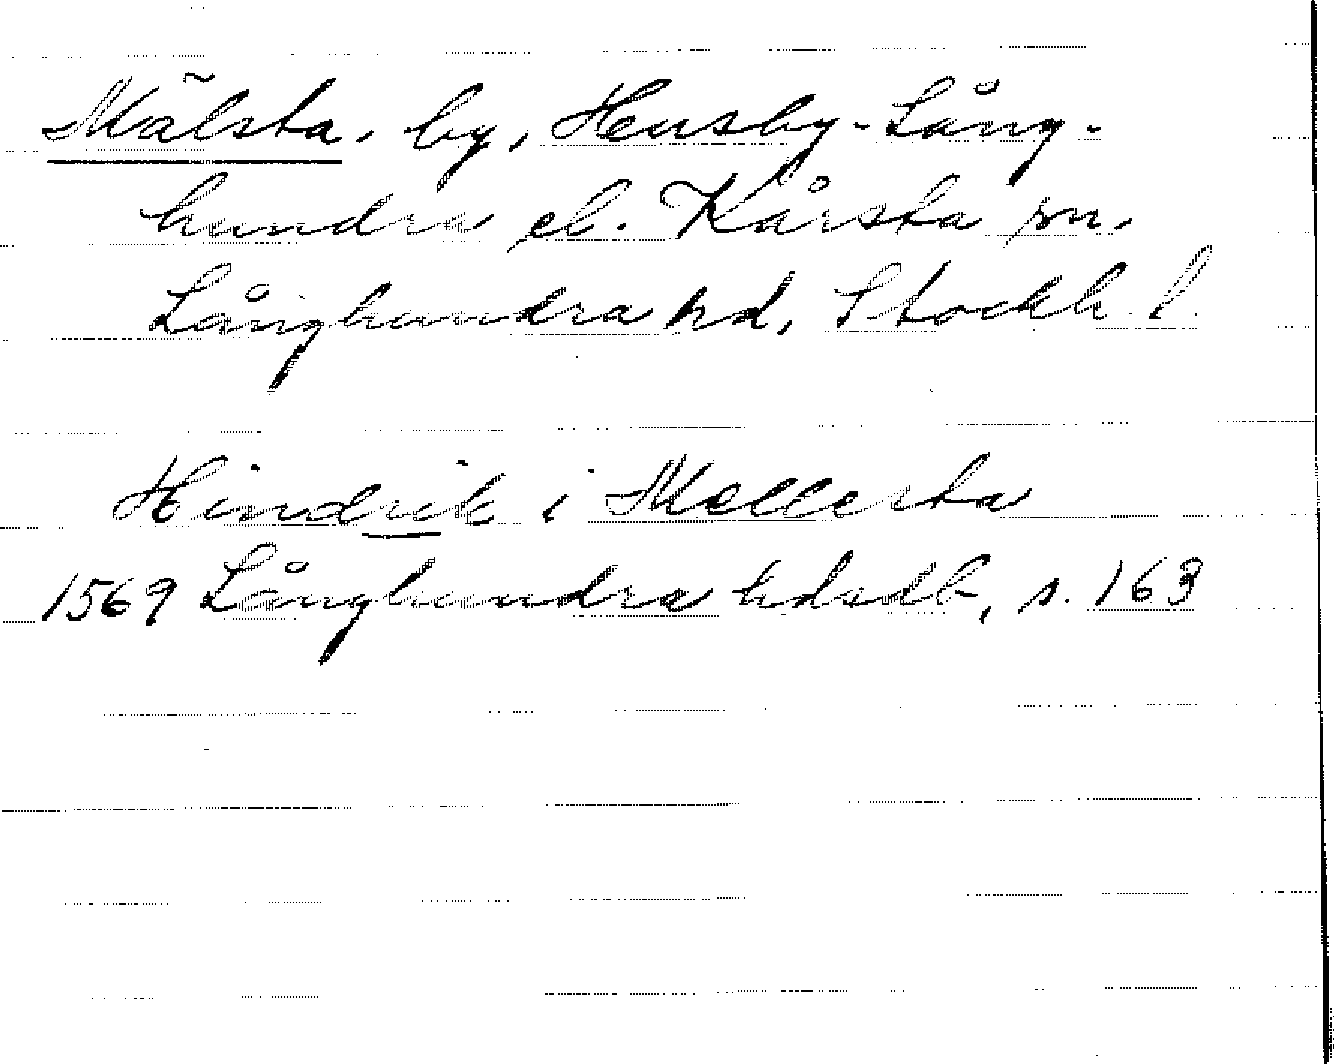 Mälsta, by, Husby-Lång-
hundra el. Kårsta sn,
Långhundra hd, Stockh. l.
Hindrik i Mellersta
1569 Långhundra hdsdb, s. 163